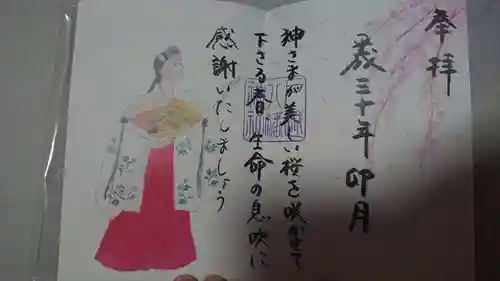 奉拝
歳三十年卯月
神さまが美しい桜を咲かせて
下さる春、生命の息吹に
感謝いたしましょう